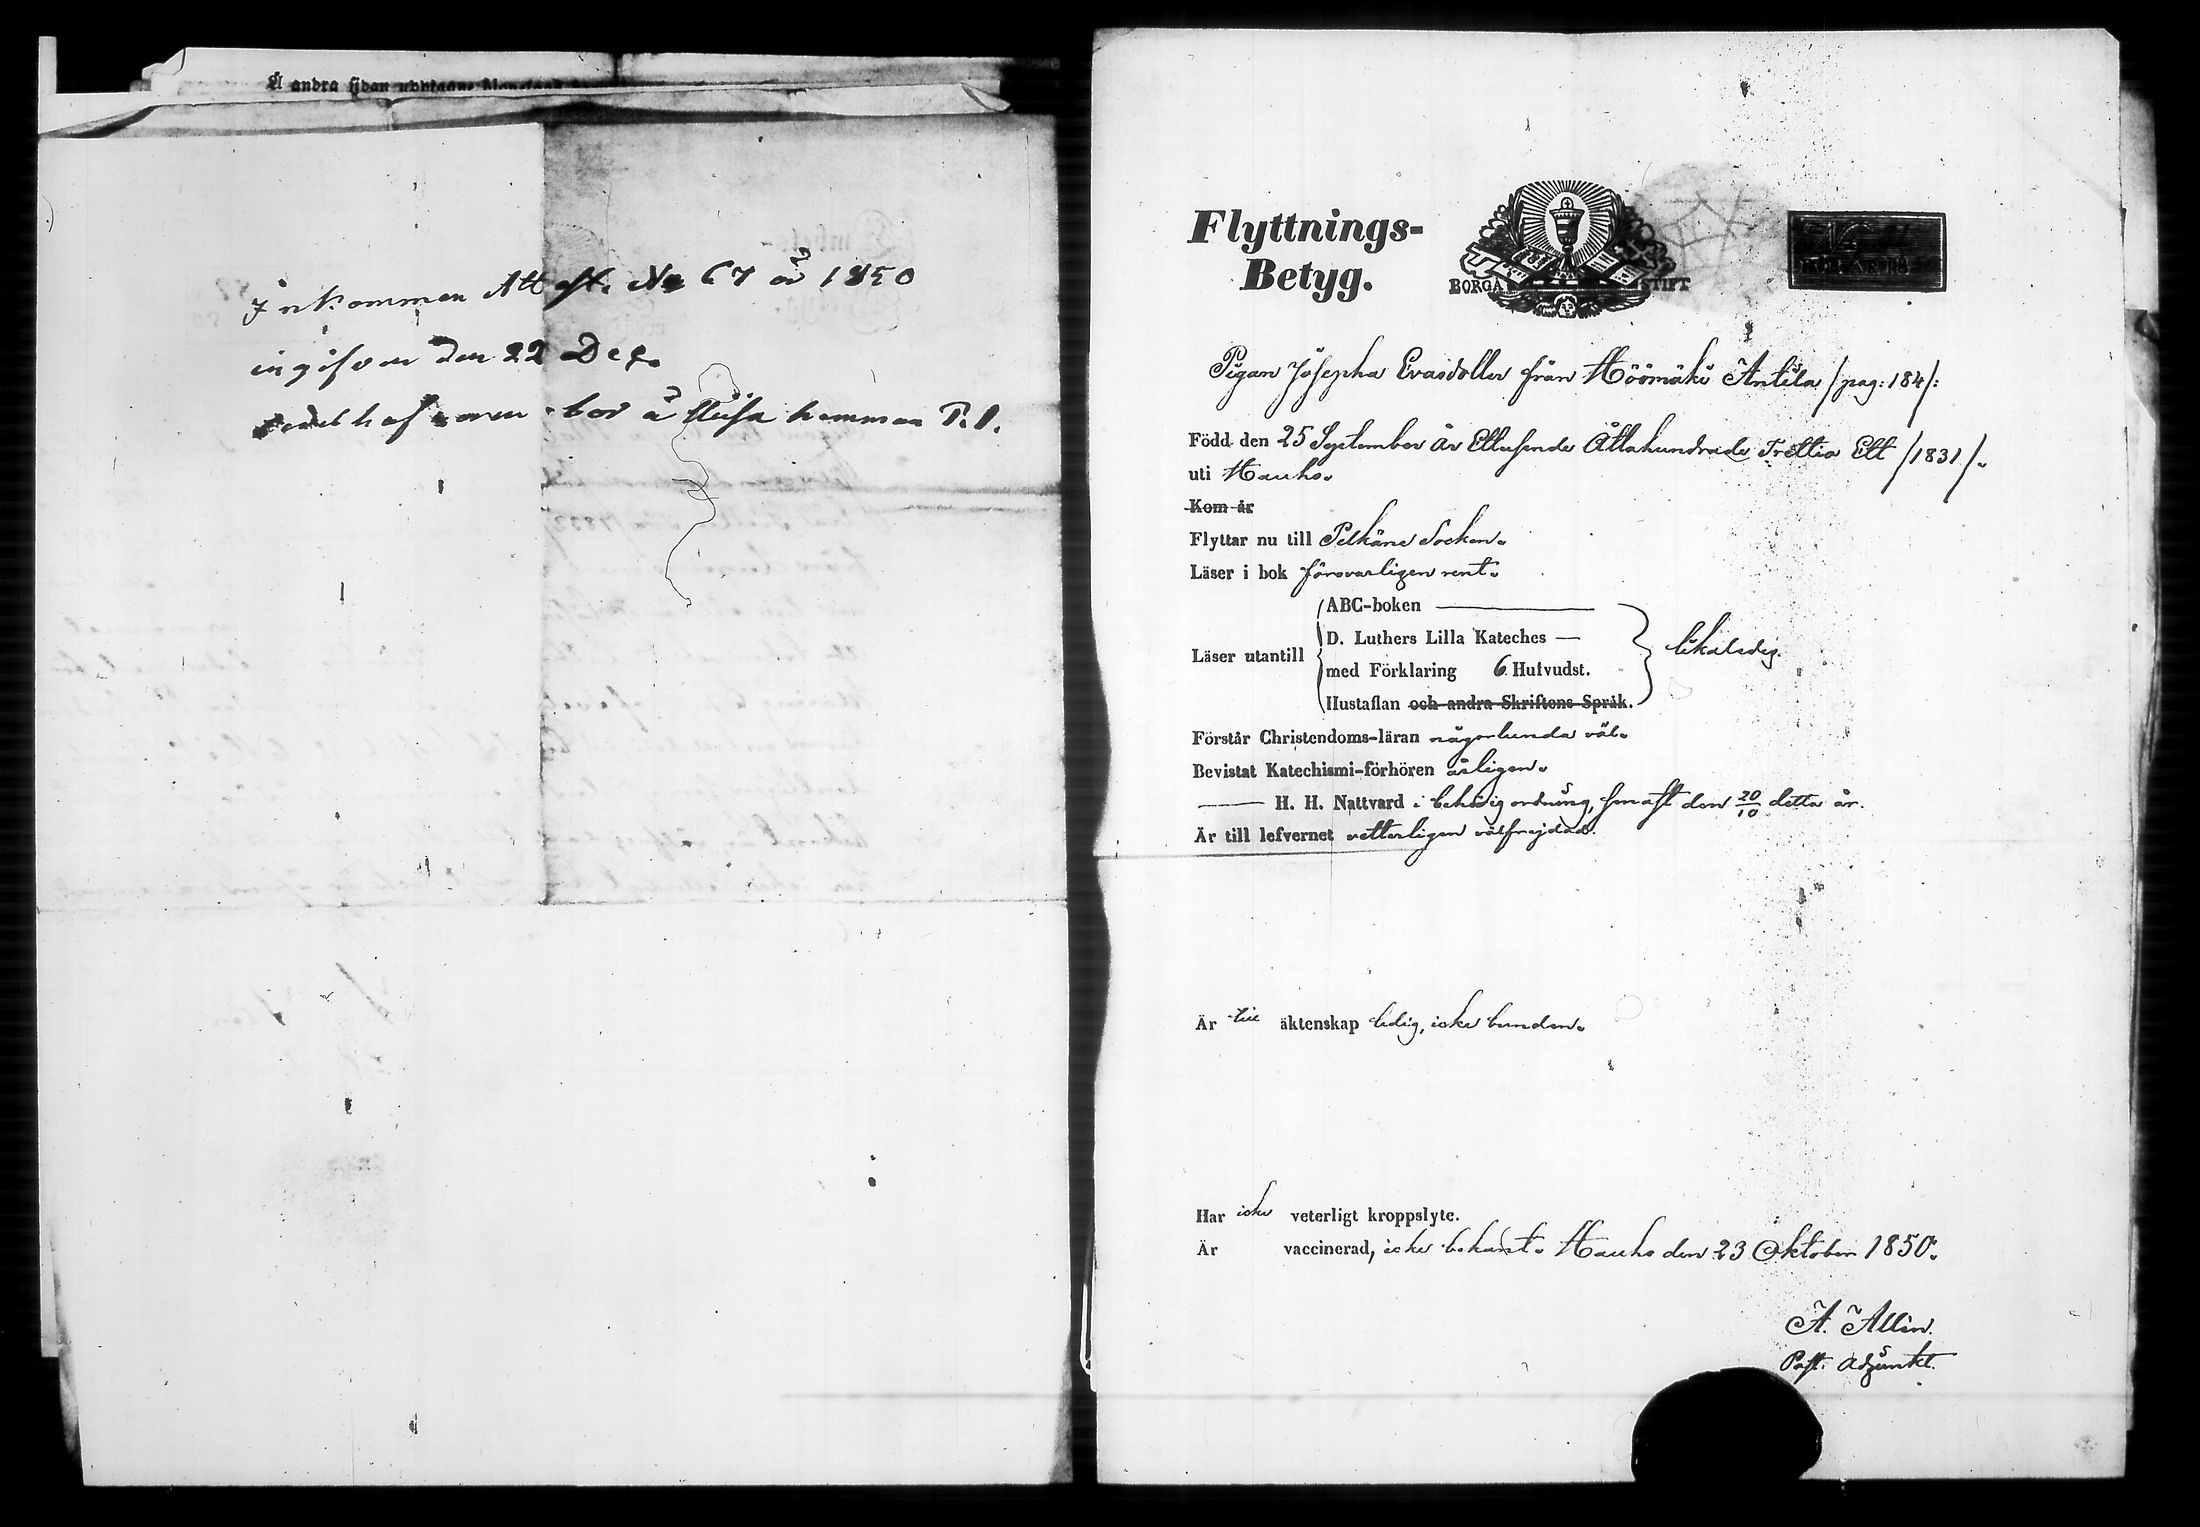 Å andra sidan
Inkommen Attest. No 67 år 1850
ingifven den 22 Dec.
bor å hemman P. S.
Flyttnings-
Betyg.
BORGÅ STIFT
Pigan Josepha Evasdotter från Höömäki Antila /pag: 184/:
Född den 25 September år Ettusende Åttahundrade Trettio Ett /1831/.
uti Hauho.
Kom år
Flyttar nu till Pelkäne Socken.
Läser i bok försvarligen rent.
ABC-boken
D. Luthers Lilla Kateches
Läser utantill
med Förklaring 6 Hufvudst.
Hustaflan och andra Skriftens Språk.
likaledes.
Förstår Christendoms-läran någorlunda väl.
Bevistat Katechismi-förhören årligen.
H. H. Nattvard i behörig ordning, senast den 20/10 detta år.
Är till lefvernet vetterligen välfrejdad.
Är till äktenskap ledig, icke bunden.
Har icke veterligt kroppslyte.
Är vaccinerad, icke bekant. Hauho den 23 Oktober 1850.
A. Allén.
Past. Adjunkt.